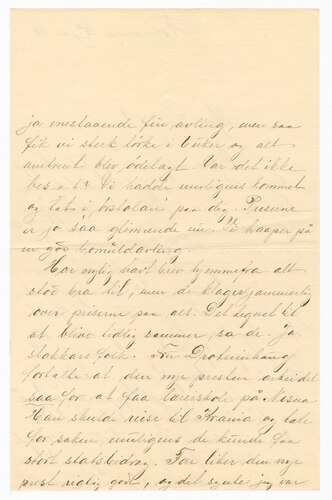 ja enestaaende fin avling, men saa
fik vi sterk tørke i uker og alt
omtrent blev ødelagt. Var det ikke
bes..t? Vi hadde muligens kommet
og lat i paa dig. Priserne
er jo saa glimrende nu. Vi haaper på
en god bomuldavling.
Har nylig havt brev hjemmefra alt
stod bra til, men de klager jammerlig
over priserne paa alt. Det tegnet til
at blive tidlig sommer, sa de. Ja
stakkars folk. Fru
fortalte at den nye presten arbeidet
saa for at faa lærerskole på Mosna
Han skulde reise til Krania og tale
for saken, muligens de kunde faa
stort statsbidrag. Far liker den nye
prest rigtig godt, og det syntes jeg var